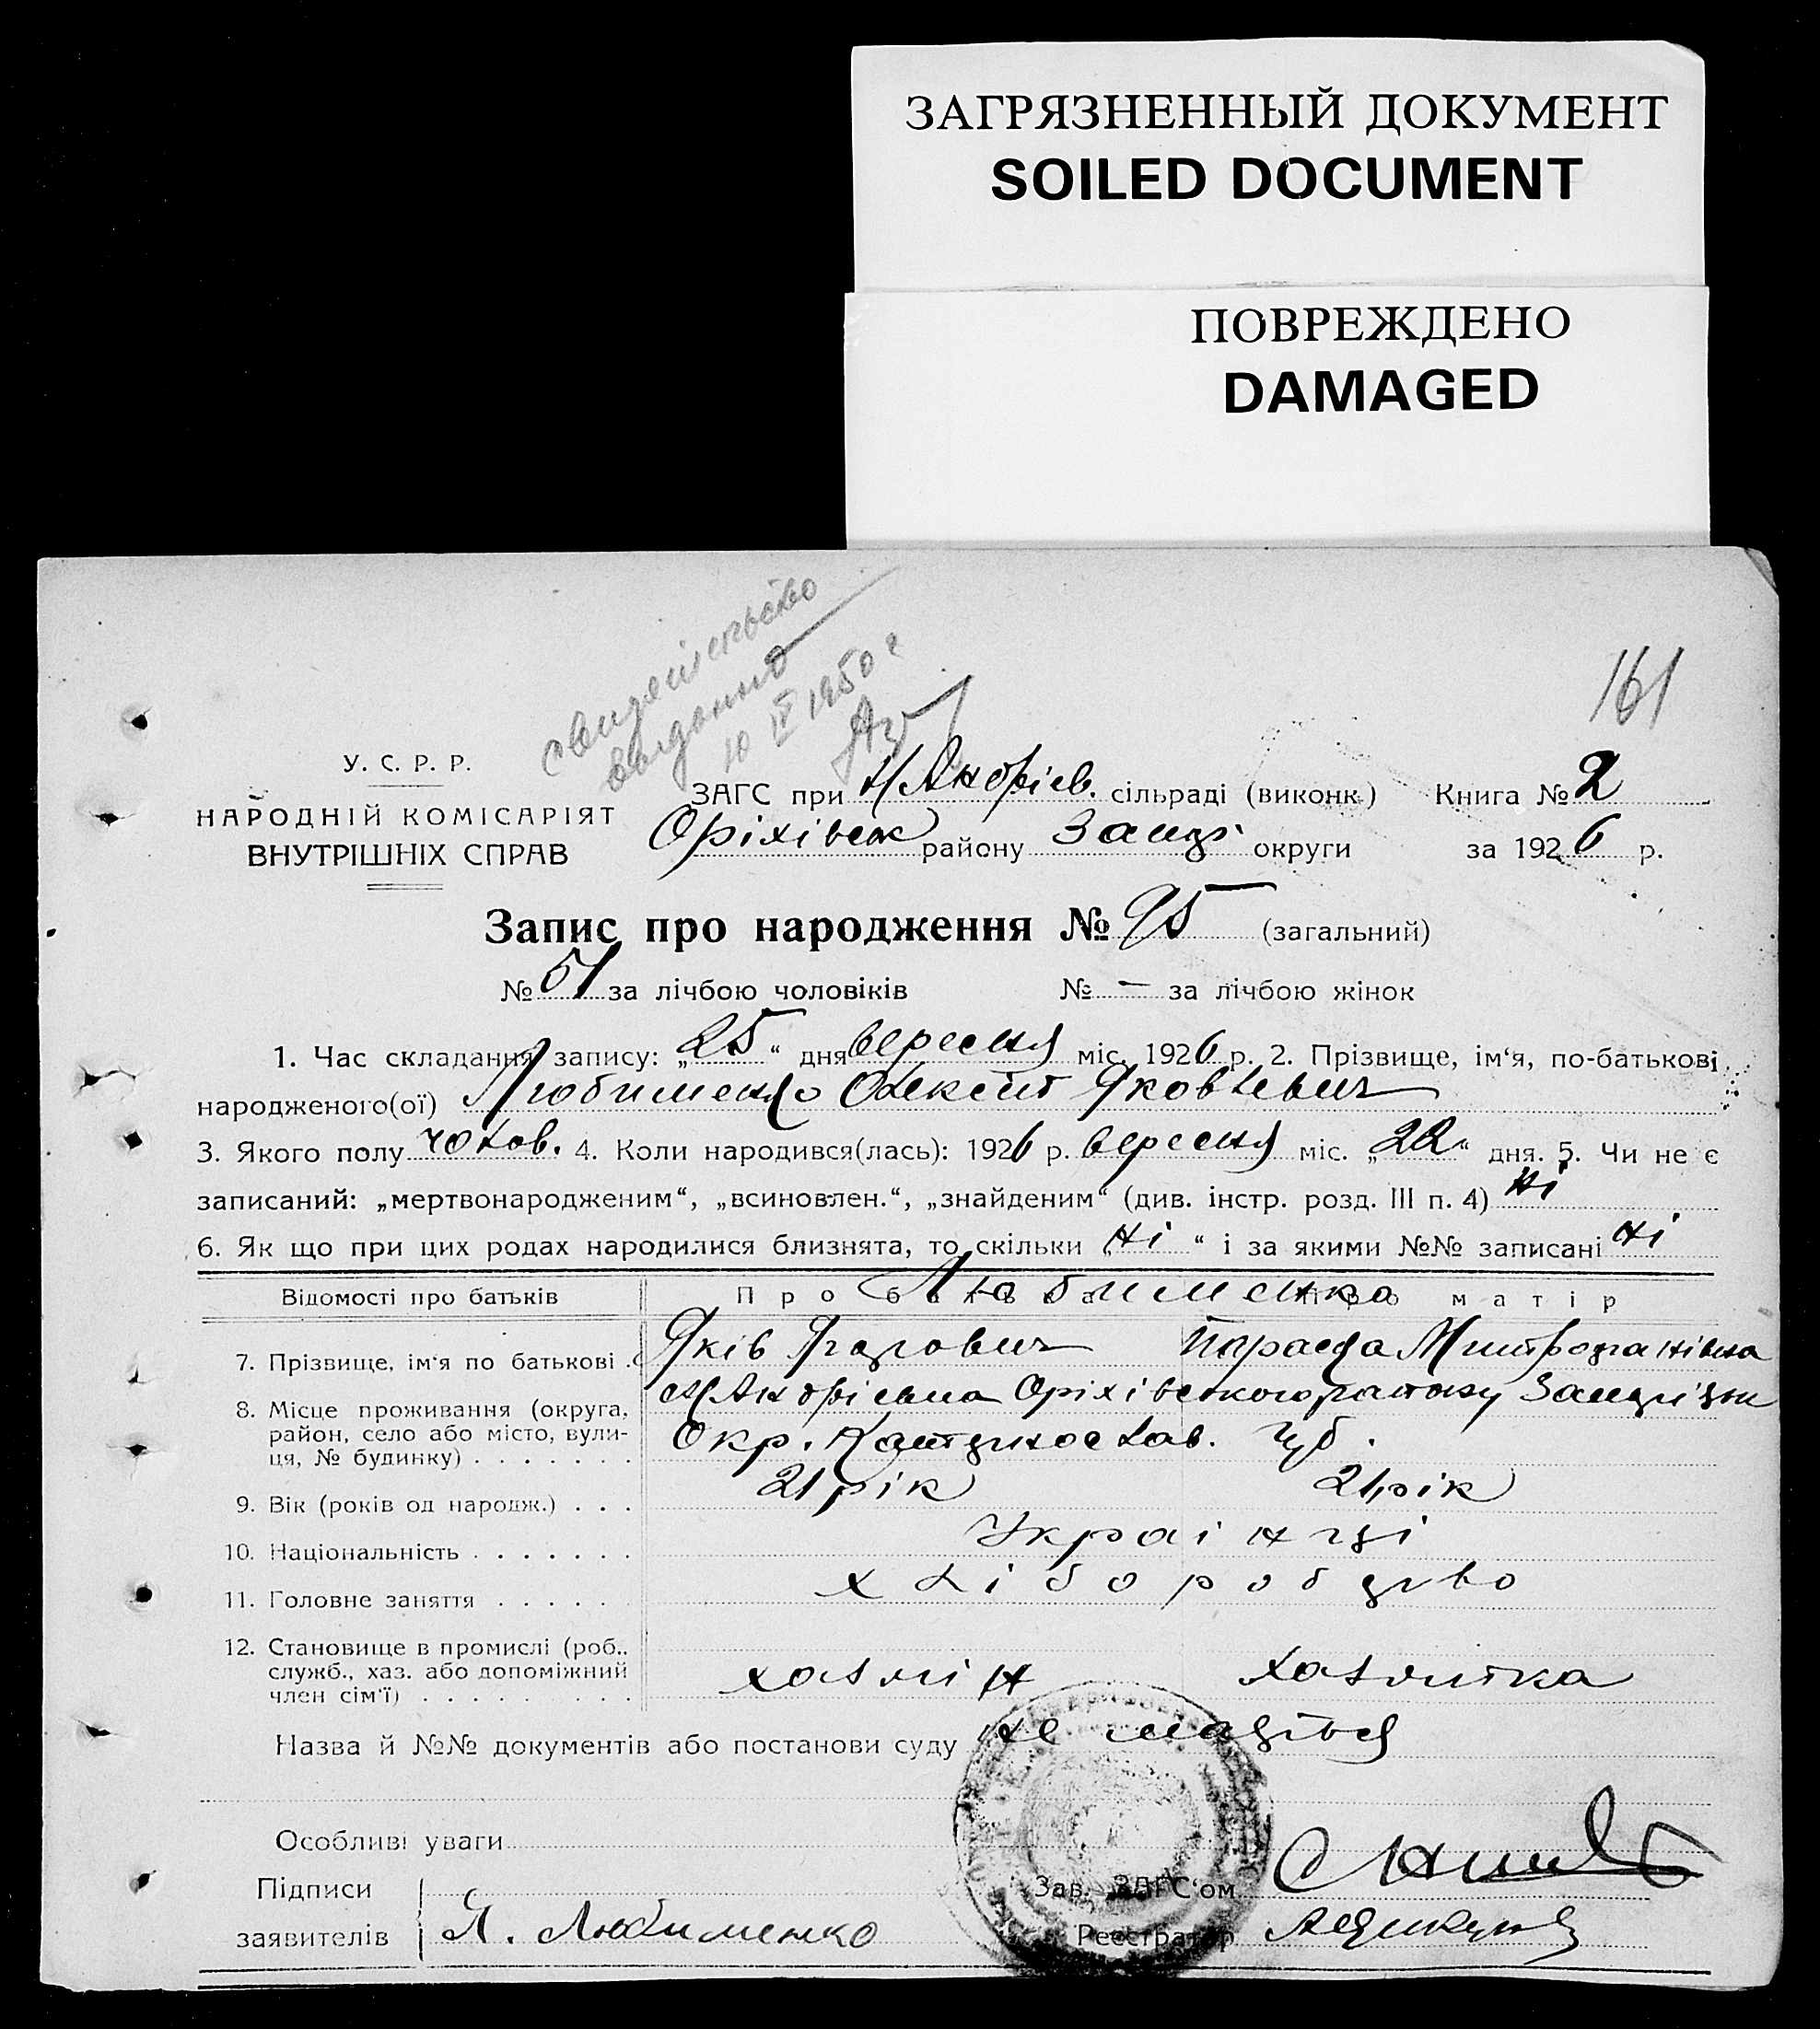 ЗАГРЯЗНЕННЫЙ ДОКУМЕНТ
SOILED DOCUMENT
ПОВРЕЖДЕНО
DAMAGED
свидетельство
выдано
10 IV 1950 г
161
У. С. Р. Р.
НАРОДНІЙ КОМІСАРІЯТ
ВНУТРІШНІХ СПРАВ
ЗАГС при Н/Андріїв. сільраді (виконк.) Книга № 2
Оріхівськ району Запор округи за 1926 р.
Запис про народження № 95 (загальний)
№ 51 за лічбою чоловіків № — за лічбою жінок
1. Час складання запису: „25“ дня вересня міс. 1926 р. 2. Прізвище, ім‘я, по-батькові
народженого(ої) Любименко Олексій Яковлевич
3. Якого полу чолов. 4. Коли народився(лась): 1926 р. вересня міс. „22“ дня. 5. Чи не є
записаний: „мертвонародженим“, „всиновлен.“, „знайденим“ (див. інстр. розд. III п. 4) ні
6. Як що при цих родах народилися близнята, то скільки „ні“ і за якими №№ записані ні
Відомості про батьків Про батька Про матір
Любименко
7. Прізвище, ім‘я по батькові . Яків Параска Митрофанівна
8. Місце проживання (округа, Н/Андріївка Оріхівського району
район, село або місто, вули- Окр. Катеринослав. губ.
ця, № будинку) . . . . . . .
9. Вік (років од народж.) . . . 21 рік 21 рік
10. Національність . . . . . . . Українці
11. Головне заняття . . . . . . хліборобство
12. Становище в промислі (роб.,
служб., хаз. або допоміжний хазяїн хазяйка
член сім‘ї) . . . . . . . . .
Назва й №№ документів або постанови суду не
Особливі уваги
Підписи Зав. ЗАГС‘ом
заявителів Я. Любименко Реєстратор